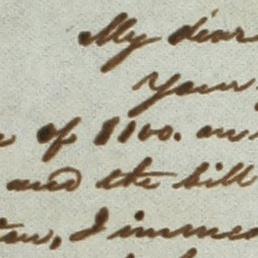 My dear
Your
of $100. an
and the bill
I imme